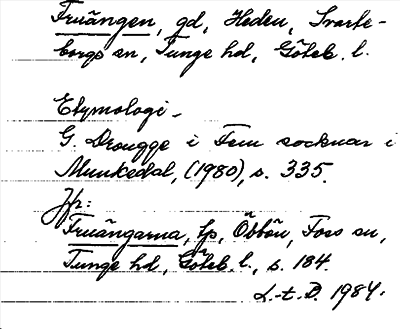 Fruängen, gd, Heden, Svarte-
borgs sn, Tunge hd, Göteb. l.
Etymologi.
G. Drougge i Fem socknar i
Munkedal, (1980), s. 335.
Jfr:
Fruängarna, lp, Öbbön, Foss sn,
Tunge hd, Göteb. l., s. 184.
L.-t. D. 1984.